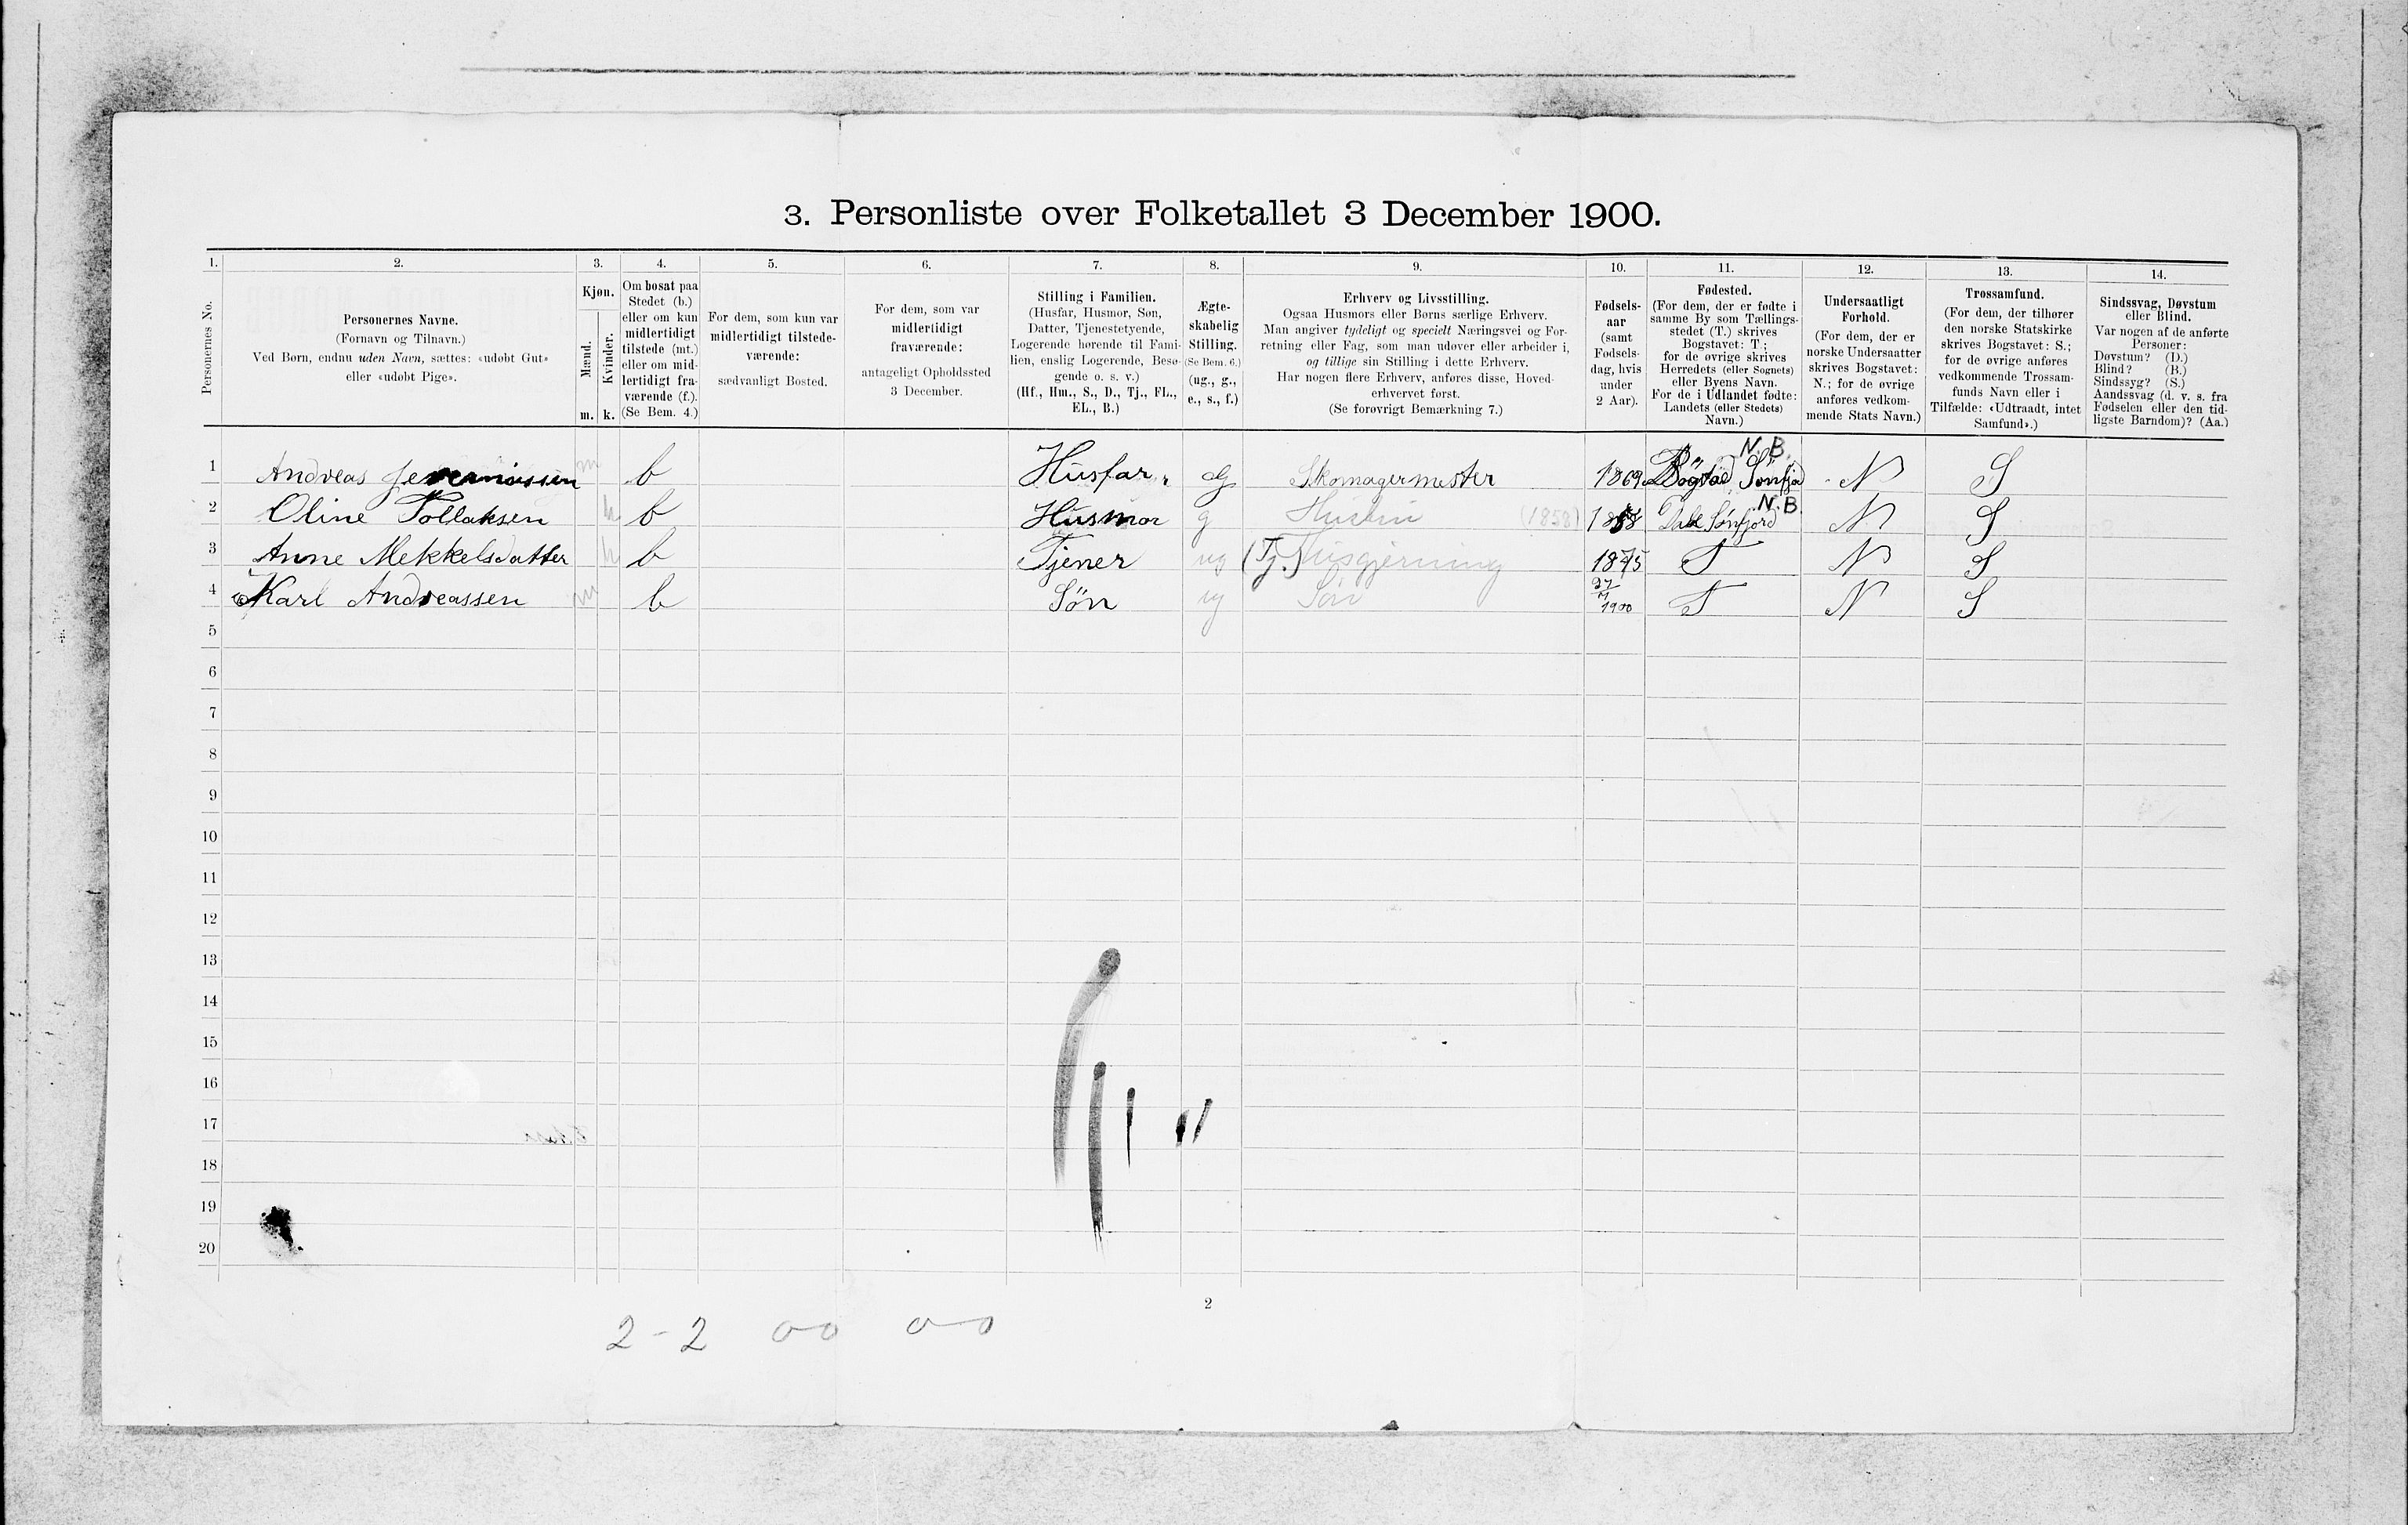 3. Personliste over Folketallet 3 December 1900.
1. 2. 3. 4. 5. 6. 7. 8. 9. 10. 11. 12. 13. 14.
Personernes No.
Personernes Navne.
(Fornavn og Tilnavn.)
Ved Børn, endnu uden Navn, sættes: «udøbt Gut»
eller «udøbt Pige».
Kjøn.
Mænd.
Kvinder.
m. k.
Om bosat paa
Stedet (b.)
eller om kun
midlertidigt
tilstede (mt.)
eller om mid-
lertidigt fra-
værende (f.).
(Se Bem. 4.)
For dem, som kun var
midlertidigt tilstede-
værende:
sædvanligt Bosted.
For dem, som var
midlertidigt
fraværende:
antageligt Opholdssted
3 December.
Stilling i Familien.
(Husfar, Husmor, Søn,
Datter, Tjenestetyende,
Logerende hørende til Fami-
lien, enslig Logerende, Besø-
gende o. s. v.)
(Hf., Hm., S., D., Tj., FL.,
EL., B.)
Ægte-
skabelig
Stilling.
(Se Bem. 6.)
(ug., g.,
e., s., f.)
Erhverv og Livsstilling.
Ogsaa Husmors eller Børns særlige Erhverv.
Man angiver tydeligt og specielt Næringsvei og For-
retning eller Fag, som man udøver eller arbeider i,
og tillige sin Stilling i dette Erhverv.
Har nogen flere Erhverv, anføres disse, Hoved-
erhvervet først.
(Se forøvrigt Bemærkning 7.)
Fødsels-
aar
(samt
Fødsels-
dag, hvis
under
2 Aar).
Fødested.
(For dem, der er fødte i
samme By som Tællings-
stedet (T.) skrives
Bogstavet: T.;
for de øvrige skrives
Herredets (eller Sognets)
eller Byens Navn.
For de i Udlandet fødte:
Landets (eller Stedets)
Navn.)
Undersaatligt
Forhold.
(For dem, der er
norske Undersaatter
skrives Bogstavet:
N.; for de øvrige
anføres vedkom-
mende Stats Navn.)
Trossamfund.
(For dem, der tilhører
den norske Statskirke
skrives Bogstavet: S.;
for de øvrige anføres
vedkommende Trossam-
funds Navn eller i
Tilfælde: «Udtraadt, intet
Samfund».)
Sindssvag, Døvstum
eller Blind.
Var nogen af de anførte
Personer:
Døvstum? (D.)
Blind? (B.)
Sindssyg? (S.)
Aandssvag (d. v. s. fra
Fødselen eller den tid-
ligste Barndom)? (Aa.)
N.B.
1 Andreas m b Husfar g Skomagermester 1869 Sønfjod N S
N.B.
2 Oline Tollaksen k b Husmor g Hustru (1858) 1858 Dale Sønfjord N S
3 Anne Mekkelsdatter k b Tjener ug (Tj.) Husgjerning 1875 T N S
4 Karl Andreassen m b Søn ug Søn 1900 T N S
5
6
7
8
9
10
11
12
13
14
15
16
17
18
19
20
2
2-2 0-0 0-0